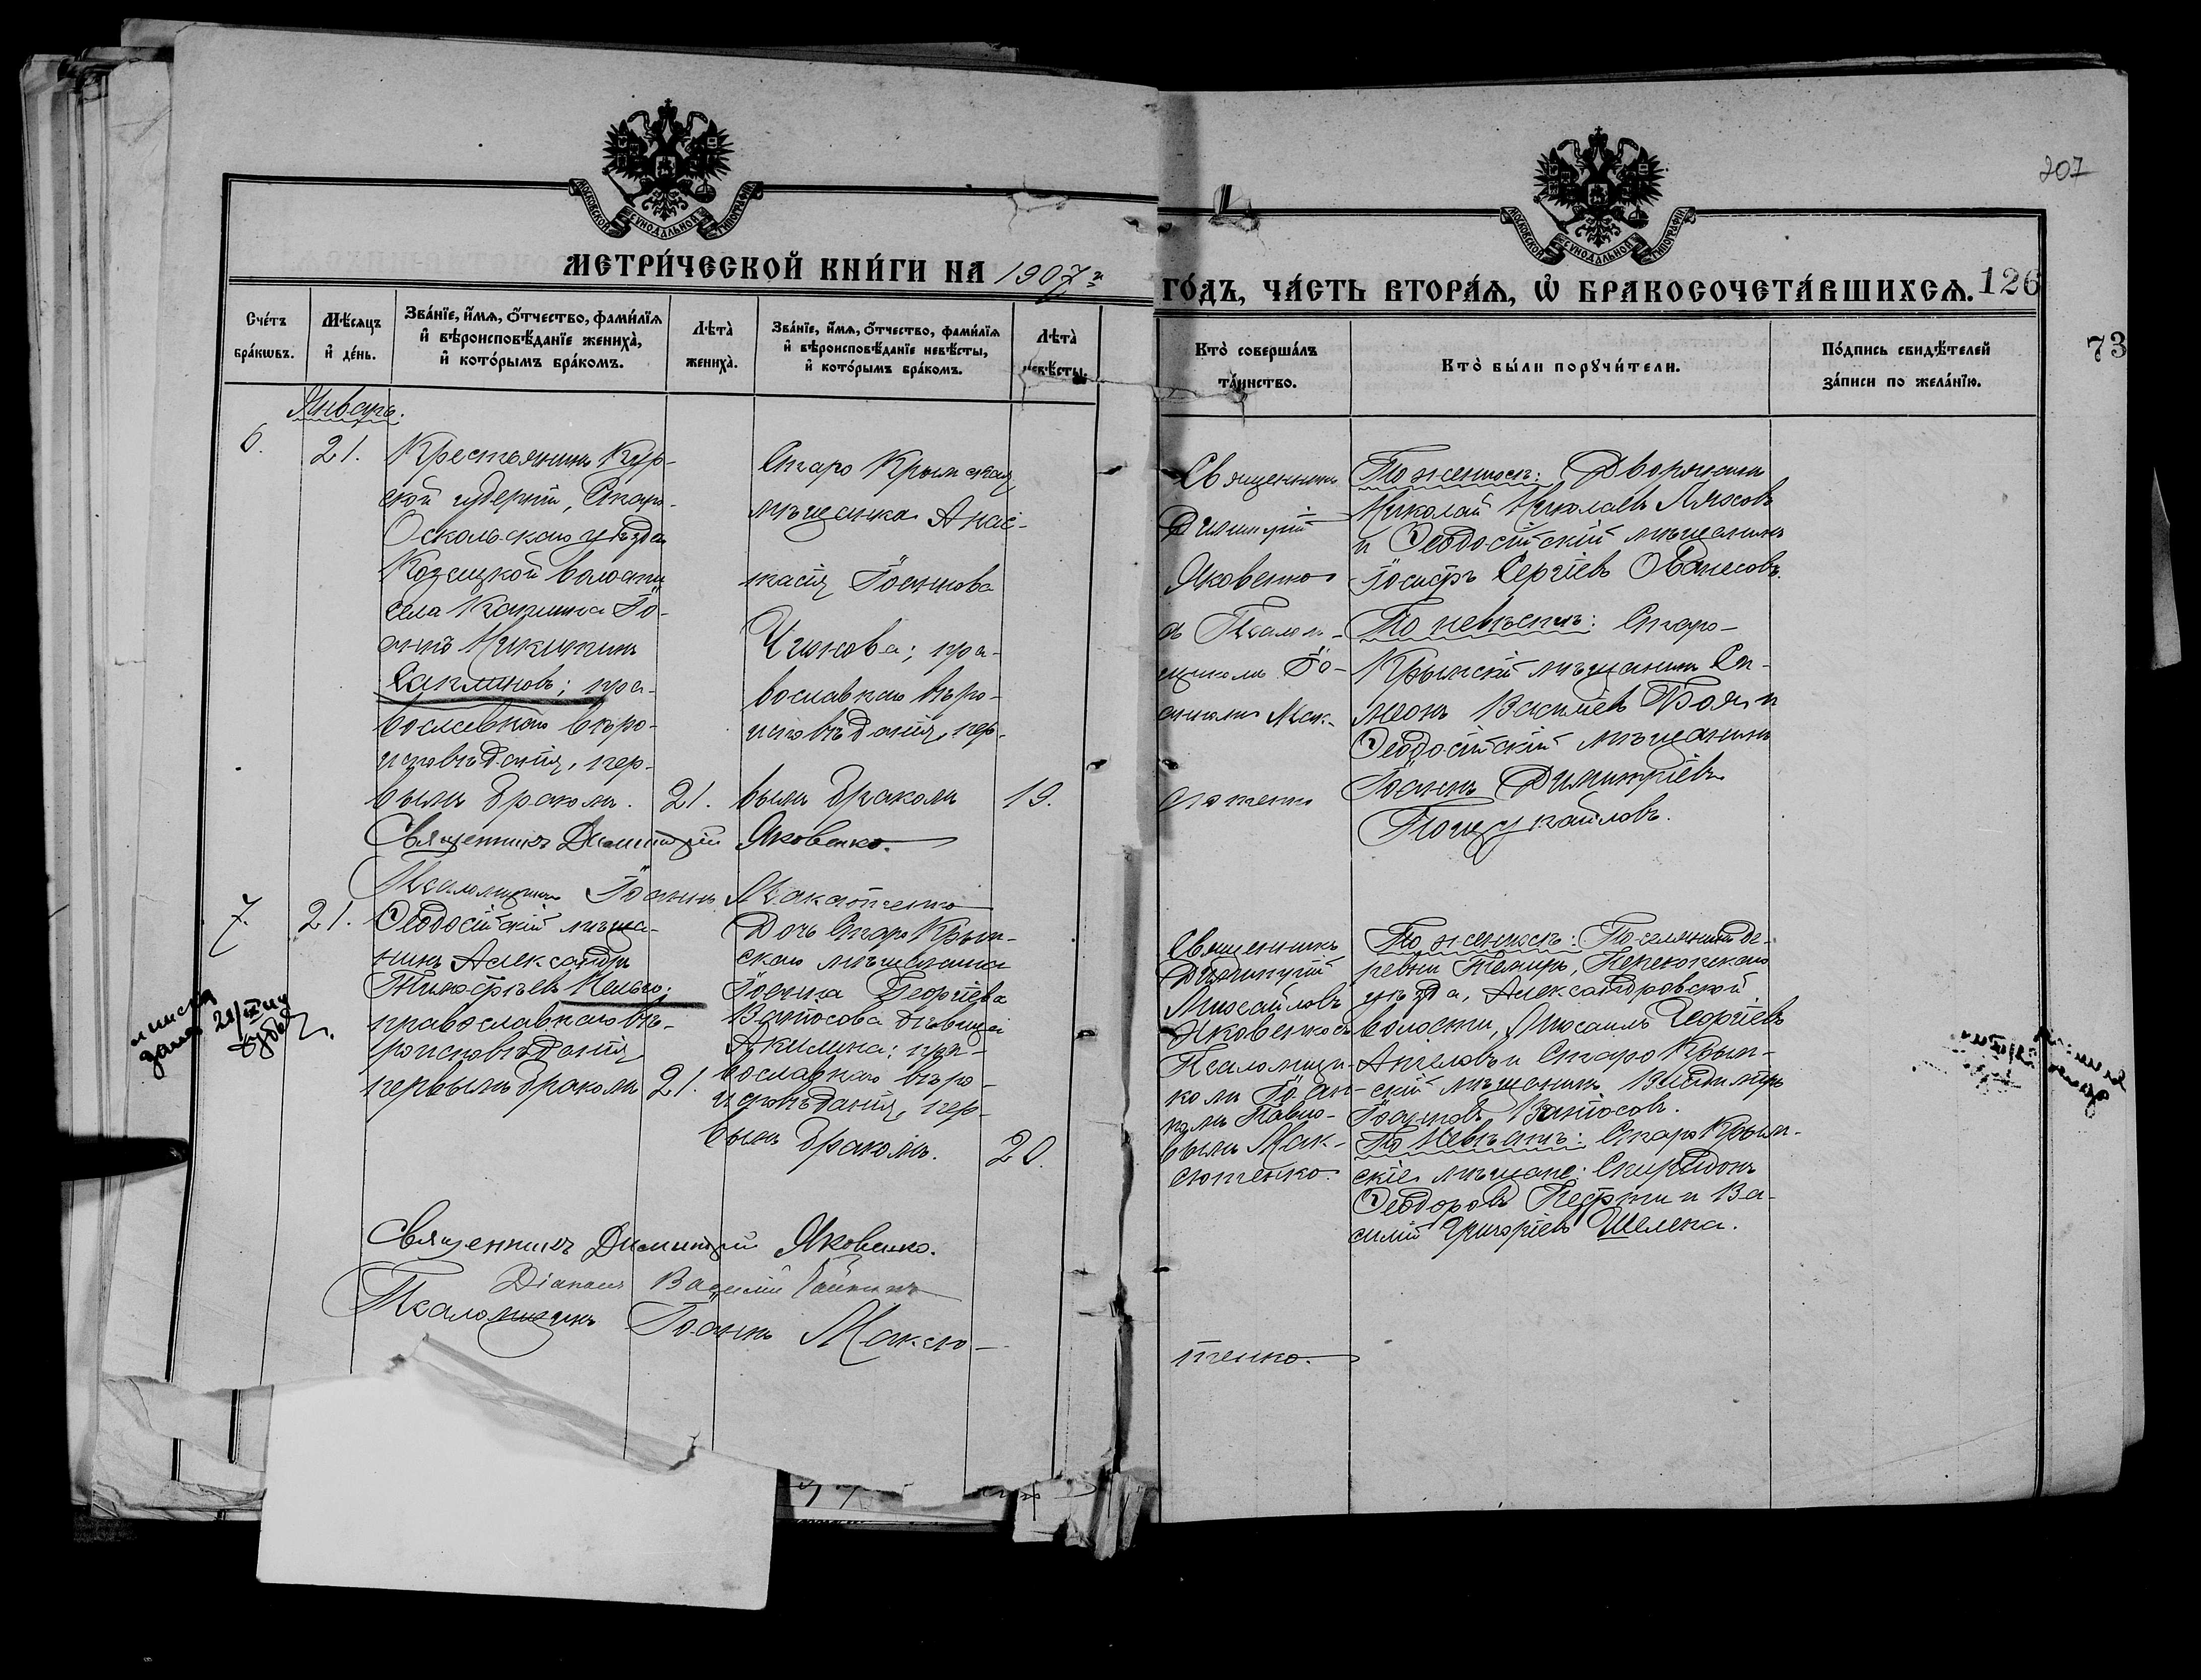 207
МОСКОВСКОЙ СѴНОДАЛЬНОЙ ТИПОГРАФІИ
МОСКОВСКОЙ СѴНОДАЛЬНОЙ ТИПОГРАФІИ
МЕТРИ́ЧЕСКОЙ КНИ́ГИ НА 1907й
ГО́ДЪ, ЧА́СТЬ ВТОРА́Ѧ, Ѽ БРАКОСОЧЕТА́ВШИХСѦ. 126
73
Сче́тъ
бра́кѡвъ.
Мѣ́сѧцъ
и҆ де́нь.
Зва́нїе, и҆́мѧ, ѻ҆́тчество, фами́лїѧ
и҆ вѣроисповѣ́данїе жениха̀,
и҆ кото́рымъ бра́комъ.
Лѣта̀
жениха̀.
Зва́нїе, и҆́мѧ, ѻ҆́тчество, фами́лїѧ
и҆ вѣроисповѣ́данїе невѣ́сты,
и҆ кото́рымъ бра́комъ.
Лѣта̀
невѣ́сты.
Кто̀ соверша́лъ
та́инство.
Кто̀ бы́ли порꙋчи́тели.
По́дпись свидѣ́телей
за́писи по жела́нїю.
Январь.
6.
21.
Крестьянинъ Кур-
ской губерніи, Старо-
Оскольскаго уѣзда
волости
села Іо-
аннъ Никитинъ
Саклаковъ; пра-
вославнаго вѣро-
исповѣданія, пер-
вымъ бракомъ.
21.
Старо Крымская
мѣщанка Анас-
тасія Іоаннова
Чижова; пра-
вославнаго вѣро-
исповѣданія, пер-
вымъ бракомъ
19.
Священникъ
Димитрій
Яковенко
съ Псалом-
щикомъ Іо-
анномъ Мак-
сютенко
По женихѣ: Дворянинъ
Николай Николаевъ Ляховъ
и Ѳеодосійскій мѣщанинъ
Іосифъ Сергіевъ Ованесовъ.
По невѣстѣ: Старо-
Крымскій мѣщанинъ Си-
меонъ Василіевъ и
Ѳеодосійскій мѣщанинъ
Іоаннъ Димитріевъ
Священникъ Димитрій Яковенко.
Псаломщикъ Іоаннъ Максютенко
7.
21.
Ѳеодосійскій мѣща-
нинъ Александръ
Тимоѳѣевъ
православнаго вѣ-
роисповѣданія
первымъ бракомъ
21.
Дочь Старо Крым-
скаго мѣщанина
Іоанна Георгіева
Ватосова дѣвица
Акилина; пра-
вославнаго вѣро-
исповѣданія, пер-
вымъ бракомъ.
20.
Священникъ
Димитрій
Михайловъ
Яковенко съ
Псаломщи-
комъ Іоан-
номъ Павло-
вымъ Мак-
сютенко.
По женихѣ: Поселянинъ де-
ревни Темиръ, Перекопскаго
уѣзда, Александровской
волости, Михаилъ Георгіевъ
Ангеловъ и Старо Крым-
скій мѣщанинъ Владимиръ
Іоанновъ Ватосовъ.
По невѣстѣ: Старо Крым-
скіе мѣщане: Спиридонъ
Ѳеодоровъ и Ва-
силій Григоріевъ Шелека.
Священникъ Димитрій Яковенко.
Діаконъ Василій
Псаломщикъ Іоаннъ Максю-
тенко.